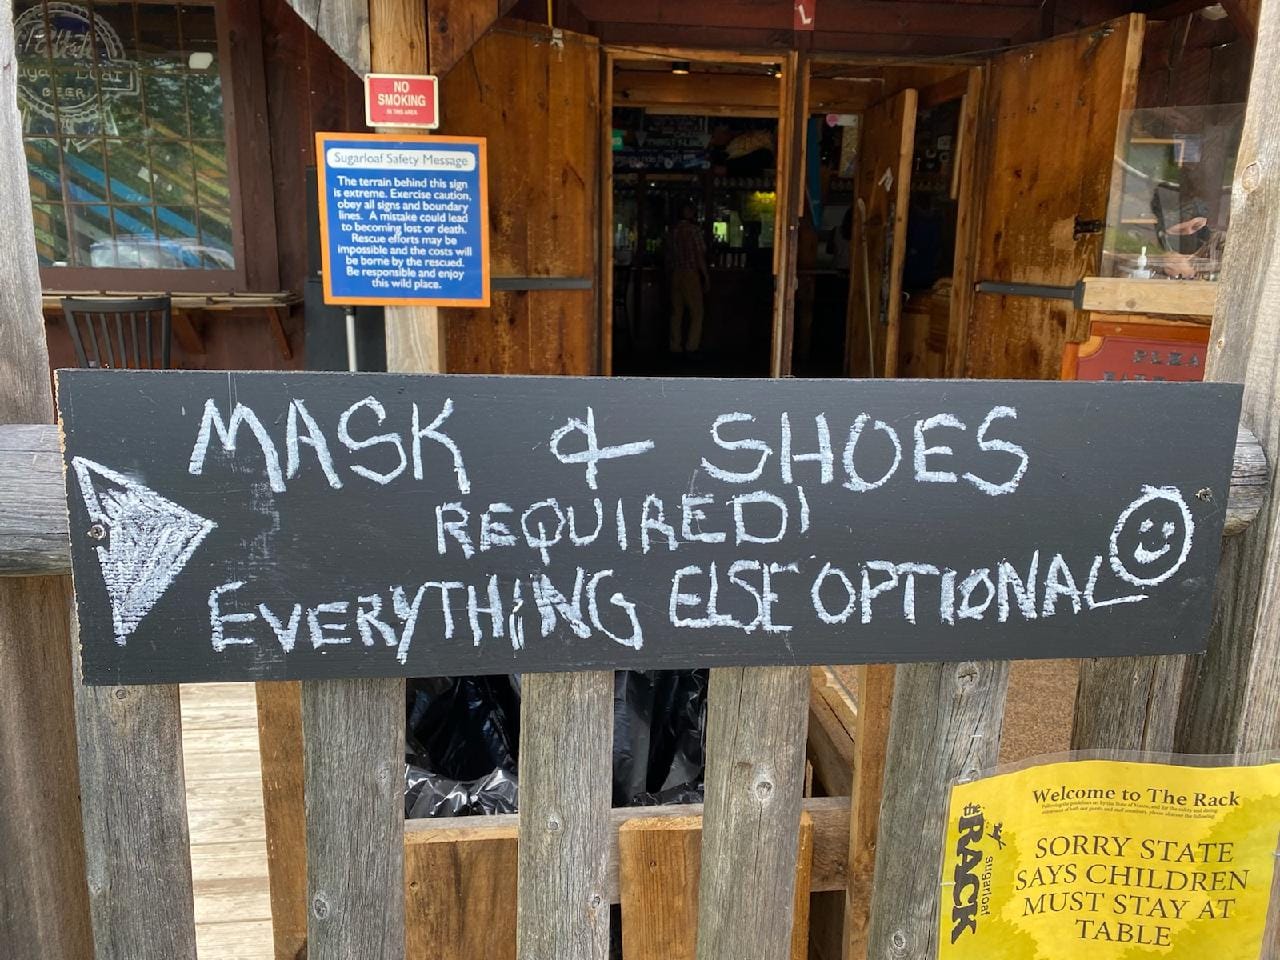 L
NO
SMOKING
IN THIS AREA
Sugarloaf Safety Message
The terrain behind this sign
is extreme. Exercise caution,
obey all signs and boundary
lines. A mistake could lead
to becoming lost or death.
Rescue efforts may be
impossible and the costs will
be borne by the rescued.
Be responsible and enjoy
this wild place.
BEER
PLEA
MASK & SHOES
REQUIRED!
EVERYTHING ELSE OPTIONAL
Welcome to The Rack
the RACK
sugarloaf
SORRY STATE
SAYS CHILDREN
MUST STAY AT
TABLE